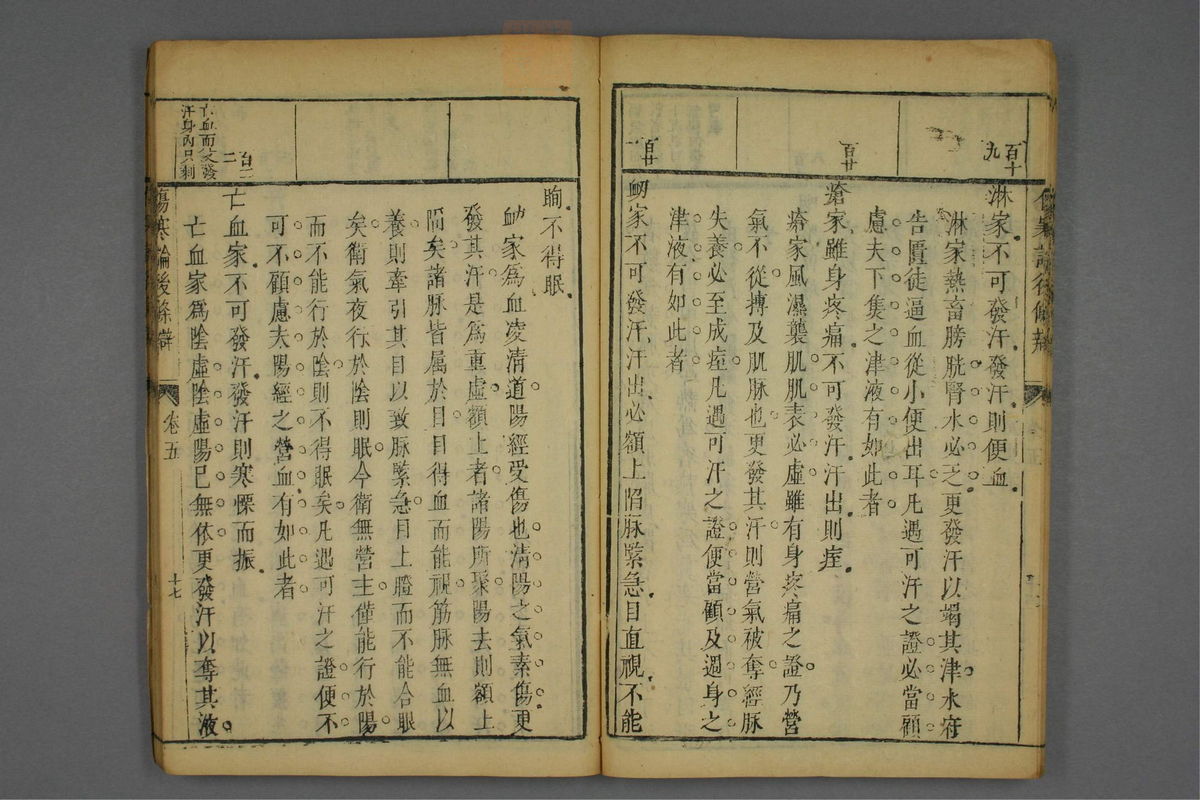 百十九
淋家不可發汗發汗則便血
淋家熱畜膀胱腎水必乏更發汗以竭其津水府
告匱徒逼血從小便出耳凡遇可汗之證必當顧
慮夫下焦之津液有如此者
百廿
瘡家雖身疼痛不可發汗汗出則痓
瘡家風濕襲肌肌表必虛雖有身疼痛之證乃營
氣不從搏及肌脉也更發其汗則營氣被奪經脉
失養必至成痓凡遇可汗之證便當顧及週身之
津液有如此者
百廿一
衄家不可發汗汗出必額上陷脉緊急目直視不能
眴不得眠
衄家爲血凌清道陽經受傷也清陽之氣素傷更
發其汗是爲重虛額上者諸陽所聚陽去則額上
陷矣諸脉皆属於目目得血而能視筋脉無血以
養則牽引其目以致脉緊急目上瞪而不能合眼
矣衛氣夜行於陰則眠今衛無營主僅能行於陽
而不能行於陰則不得眠矣凡遇可汗之證便不
可不顧慮夫陽經之營血有如此者
百二二
亡血家不可發汗發汗則寒慄而振
亡血家爲陰虛陰虛陽已無依更發汗以奪其液
亡血而又發
汗身內只剩
傷寒論後條辯
卷五
十七